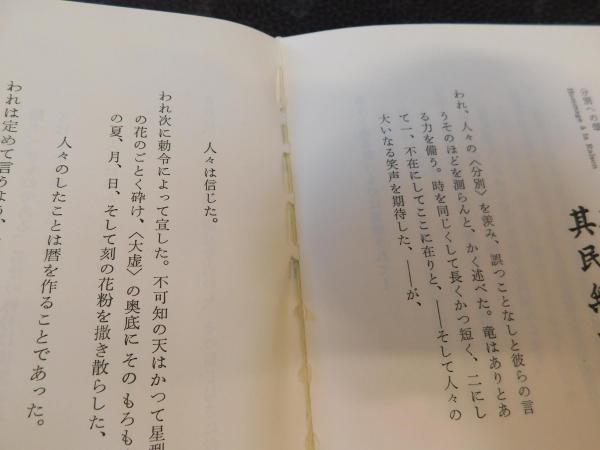 分別への
Hommage à la Raison
其民無
われ、人々の〈分別〉を羨み、誤つことなしと彼らの言
うそのほどを測らんと、かく述べた。竜はありとあ
る力を備う。時を同じくして長くかつ短く、二にし
て一、不在にしてここに在りと、――そして人々の
大いなる笑声を期待した、――が、
人々は信じた。
われ次に勅令によって宣した。不可知の天はかつて星型
の花のごとく砕け、〈大虚〉の奥底にそのもろも
の夏、月、日、そして刻の花粉を撒き散らした、
人々のしたことは暦を作ることであった。
われは定めて言うよう、